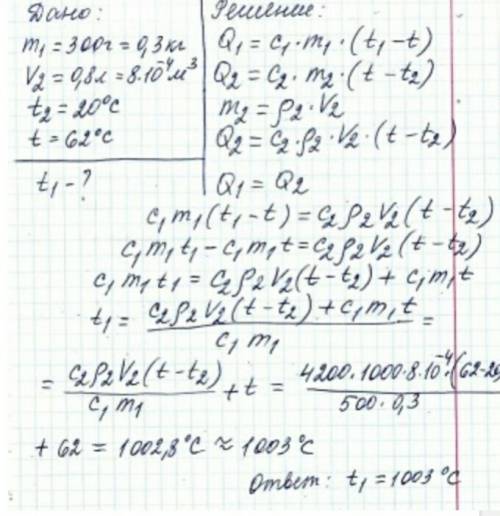 Дано:
m₁ = 300г = 0,3 кг
V₂ = 0,8 л = 8·10⁻⁴ м³
t₂ = 20°C
t = 62°C
t₁ - ?
Решение:
Q₁ = c₁·m₁·(t₁ - t)
Q₂ = c₂·m₂·(t - t₂)
m₂ = ρ₂·V₂
Q₂ = c₂·ρ₂·V₂·(t - t₂)
Q₁ = Q₂
c₁m₁(t₁ - t) = c₂ρ₂V₂(t - t₂)
c₁m₁t₁ - c₁m₁t = c₂ρ₂V₂(t - t₂)
c₁m₁t₁ = c₂ρ₂V₂(t - t₂) + c₁m₁t
t₁ = (c₂ρ₂V₂(t - t₂) + c₁m₁t) / (c₁m₁) =
= (c₂ρ₂V₂(t - t₂)) / (c₁m₁) + t = (4200·1000·8·10⁻⁴·(62-20) / (500·0,3)
+ 62 = 1002,8°C ≈ 1003°C
Ответ: t₁ = 1003°C